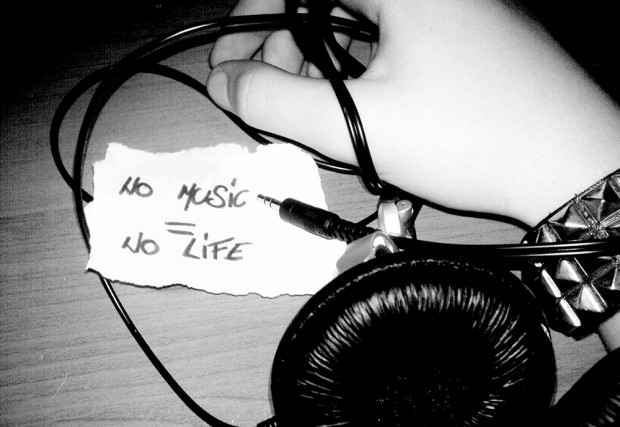 NO MUSiC
=
NO LiFE